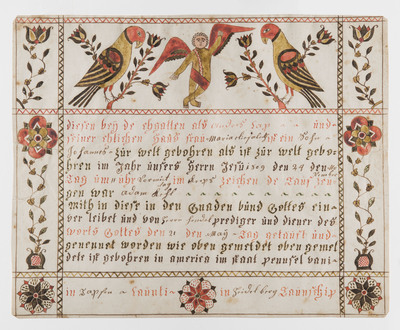 diesen beÿde ehgatten als und
seiner ehlichen Haus frau Maria ist ein Sohn
Johannes zür welt gebohren als ist zür welt gebo
hren im Jahr ünsers Herrn Jesü den 24 den
Tag üm uhr im zeichen de Taüf zeu
gen war adam
Mith in diese in den Gnaden bünd Gottes ein
ver leibet ünd von Herr prediger ünd diener des
worts Gottes den den Maÿ Tag getaüft ünd
genennet worden wie oben gemeldet oben gemel
dete ist gebohren in america im staat pennsel vani
in caünti in Heidelberg Taünschip